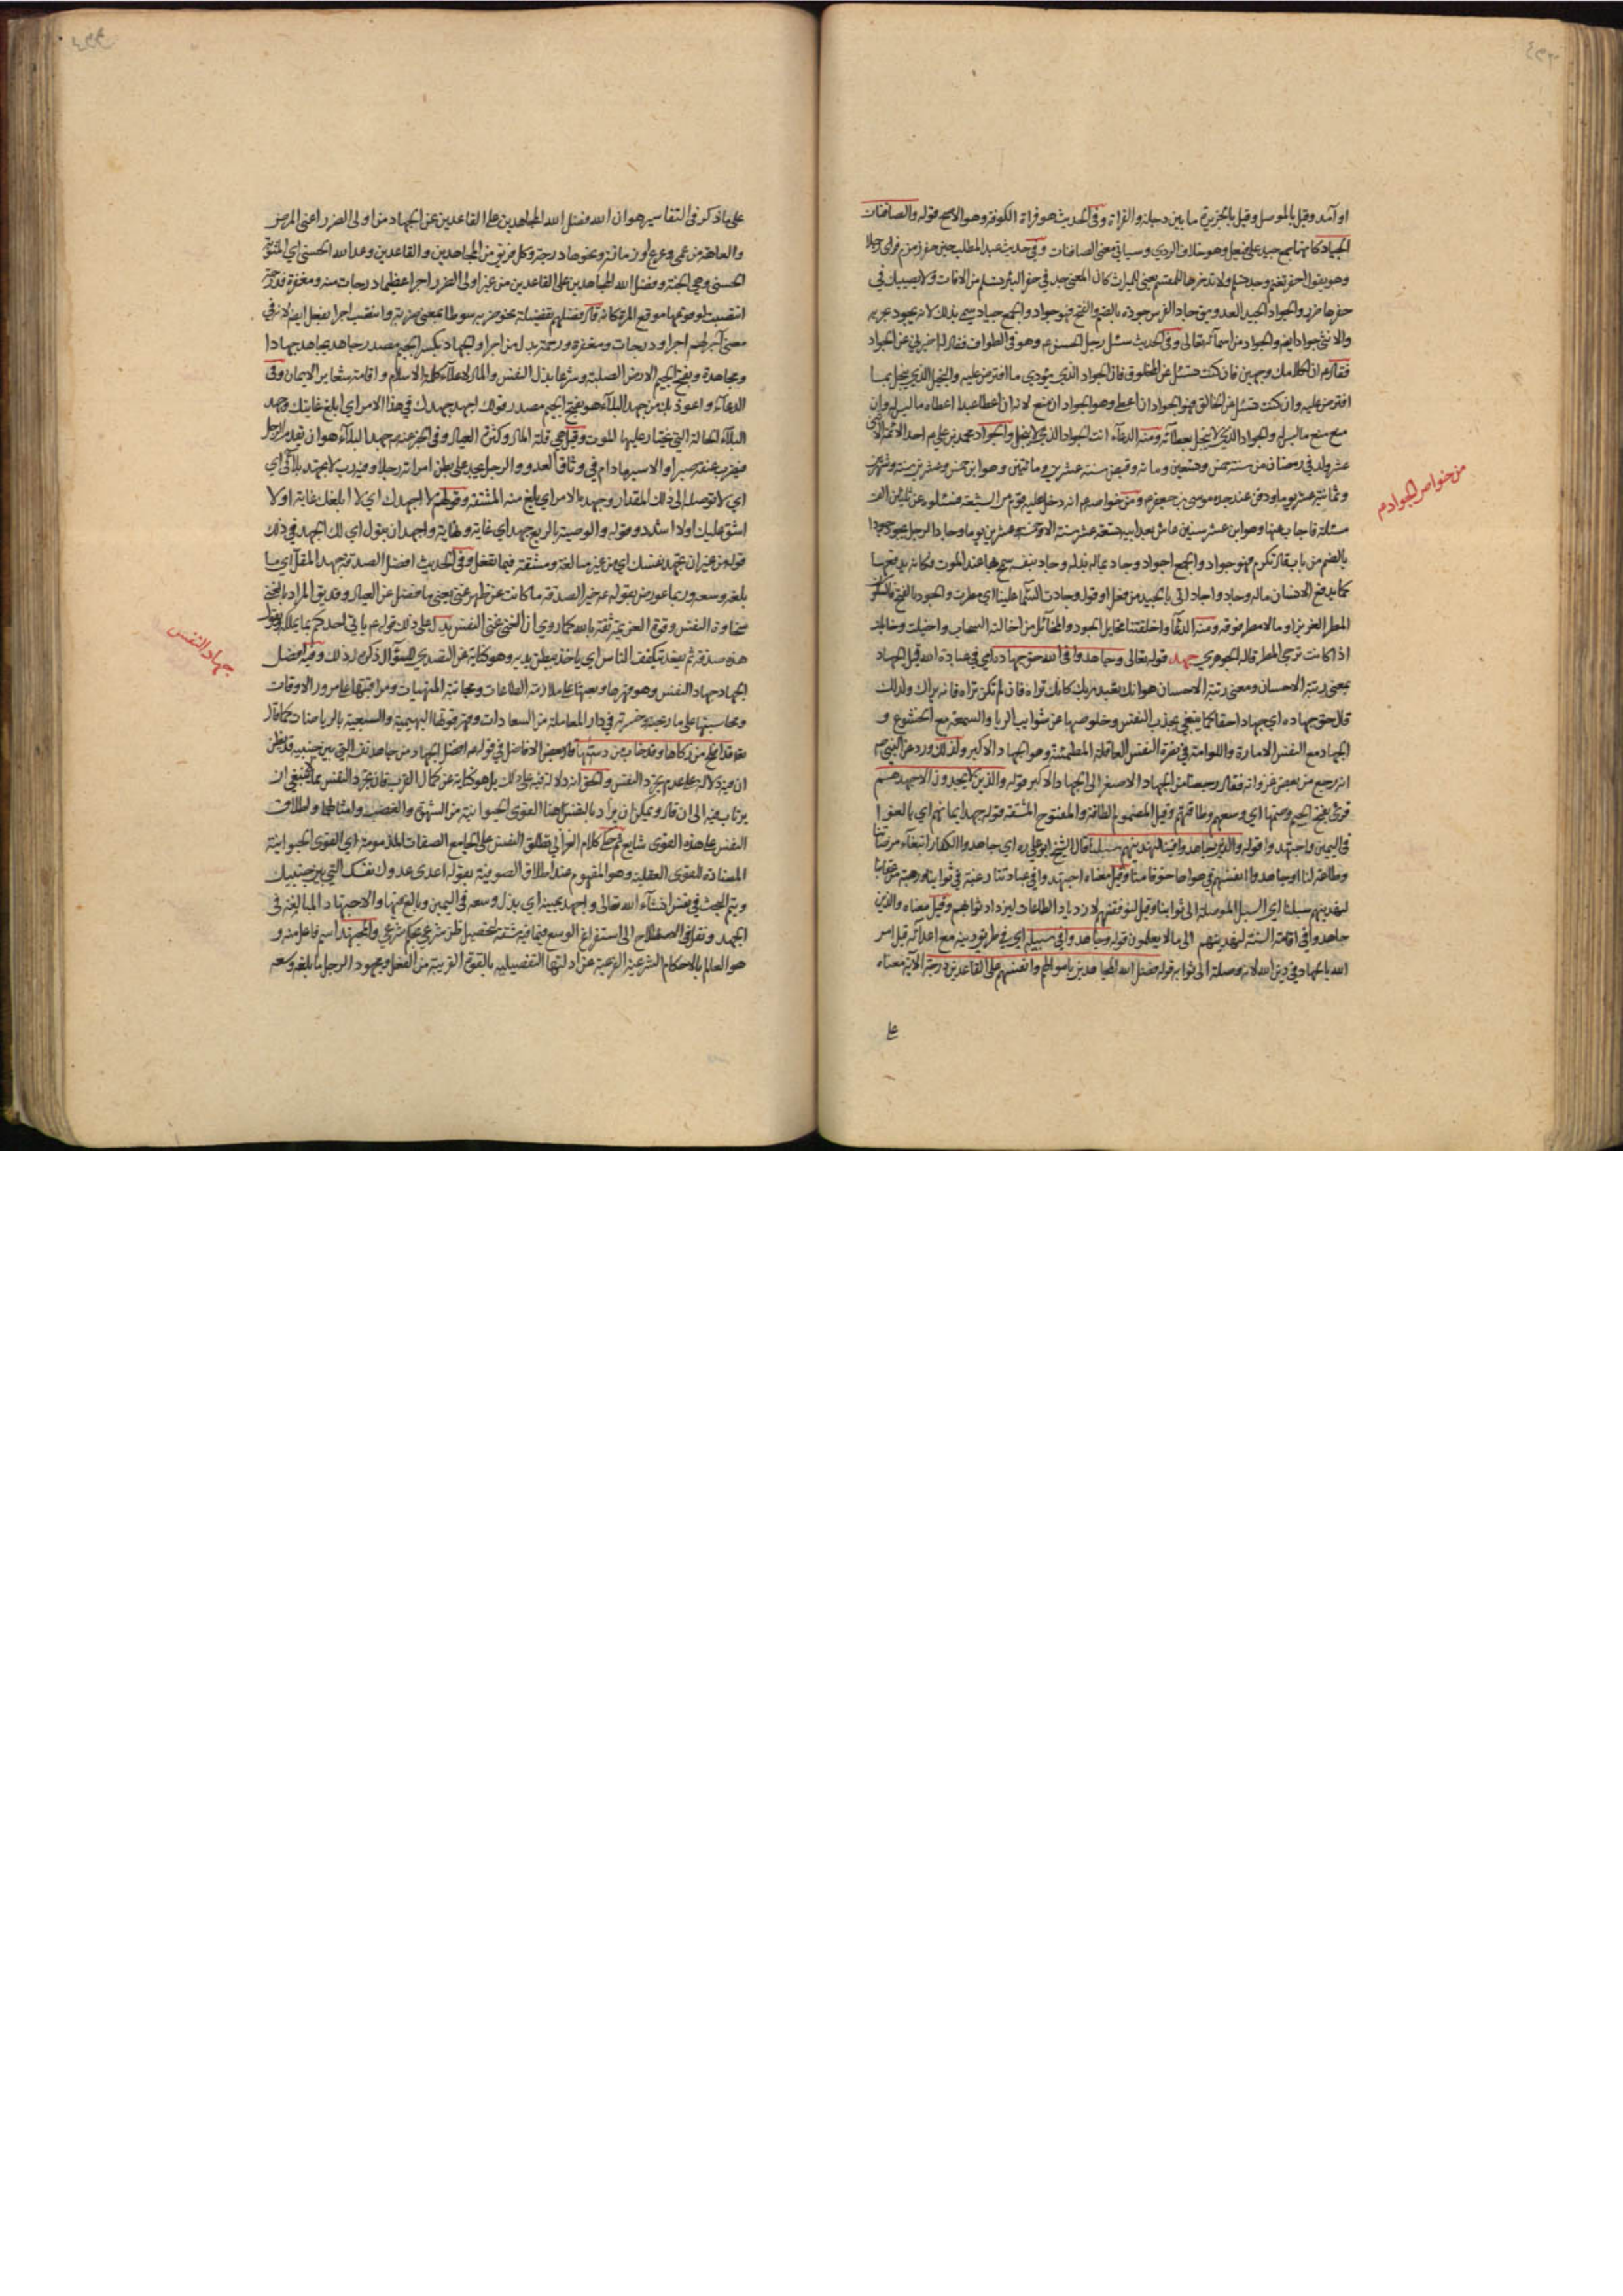 او آمد وقيل بالموصل وقيل بالجزيرة ما بين دجلة والفرات وفي الحديث هو فراة الكوفة وهو الاصح قوله والصافنات
الجياد كانها جمع جيد على فيعل وهو خلاف الردي وسياتي معنى الصافنات وفي حديث عبد المطلب حين حفر زمزم فراى رجلا
وهو يقول احفر تغنم وجد تسلم ولا تدخرها للمقسم يعني الميراث كان المعنى جد في حفر البئر تسلم من الافات ولا يصيبك في
حفرها ضرر والجواد الجيد للعدو يق جاد الفرس جودة بالضم والفتح فهو جواد والجمع جياد سمي بذلك لانه يجود بجريه
والانثى جواد ايضم والجواد من اسمائه تعالى وفي الحديث سئل رجل الحسن م وهو في الطواف فقال له اخبرني عن الجواد
فقال م ان لكلامك وجهين فان كنت تسئل عن المخلوق فان الجواد الذي يؤدي ما افترض عليه والبخيل الذي يبخل بما
افترض عليه وان كنت تسئل عن الخالق فهو الجواد ان اعطى وهو الجواد ان منع لانه ان اعطى عبدا اعطاه ما ليس له وان
منع منع ما ليس له والجواد الذي لا يبخل بعطائه ومنه الدعاء انت الجواد الذي لا يبخل والجواد محمد بن علي م احد الائمة الاثنى
عشر ولد في رمضان من سنة خمس وتسعين ومائة وقبض سنة عشرين ومائتين وهو ابن خمس وعشرين سنة وشهرين
وثمانية عشر يوما ودفن عند جده موسى بن جعفر م ومن خواصه م انه دخل عليه قوم من الشيعة فسئلوه عن ثلثين الف
مسئلة فاجاب عنها وهو ابن عشر سنين عاش بعد ابيه تسعة عشر سنة الا خمسة وعشرين يوما وجاد الرجل يجود جودا
بالضم من باب قال تكرم فهو جواد والجمع اجواد وجاد بماله بذله وجاد بنفسه سمح بها عند الموت وكانه يدفعها
كما يدفع الانسان ماله وجاد واجاد اتى بالجيد من فعل او قول وجادت السماء علينا اي مطرت والجود بالفتح فالسكون
المطر الغزير او ما لا مطر فوقه ومنه الدعاء واخلفتنا مخايل الجود والمخائل من اخالت السحاب واخيلت وخايلت
اذا كانت ترجى المطر قاله الجوهري جهد قوله تعالى وجاهدوا في الله حق جهاده اي في عبادة الله قيل الجهاد
بمعنى رتبة الاحسان ومعنى رتبة الاحسان هو انك تعبد ربك كانك تراه فان لم تكن تراه فانه يراك ولذلك
قال حق جهاده اي جهادا حقا كما ينبغي بجذب النفس وخلوصها عن شوايب الريا والسمعة مع الخشوع و
الجهاد مع النفس الامارة واللوامة في نصرة النفس العاقلة المطمئنة وهو الجهاد الاكبر ولذلك ورد عن النبي ص
انه رجع من بعض غزواته فقال رجعنا من الجهاد الاصغر الى الجهاد الاكبر قوله والذين لا يجدون الا جهدهم
قرئ بفتح الجيم وضمها اي وسعهم وطاقتهم وقيل المضموم الطاقة والمفتوح المشقة قوله جهد ايمانهم اي بالغوا
في اليمين واجتهدوا قوله والذين جاهدوا فينا لنهدينهم سبلنا قال الشيخ ابو علي ره اي جاهدوا الكفار ابتغاء مرضاتنا
وطاعة لنا وجاهدوا انفسهم في هواها خوفا منا وقيل معناه اجتهدوا في عبادتنا رغبة في ثوابنا ورهبة من عقابنا
لنهدينهم سبلنا اي السبل الموصلة الى ثوابنا وقيل لنوفقنهم لازدياد الطاعات ليزداد ثوابهم وقيل معناه والذين
جاهدوا في اقامة السنة لنهدينهم الى ما لا يعلمون قوله وجاهدوا في سبيله اي في طريق دينه مع اعدائه قيل امر
الله بالجهاد في دين الله لانه وصلة الى ثوابه قوله فضل الله المجاهدين باموالهم وانفسهم على القاعدين درجة الاية معناه
على
من خواص الجواد م
على ما ذكر في التفاسير هو ان الله فضل الله المجاهدين على القاعدين عن الجهاد من اولى الضرر اعني المرض
والعاهة من عمى وعرج او زمانة ونحوها درجة وكل فريق من المجاهدين والقاعدين وعد الله الحسنى اي المثوبة
الحسنى وهي الجنة وفضل الله المجاهدين على القاعدين من غير اولى الضرر اجرا عظيما درجات منه ومغفرة ودرجة
انتصبت لوقوعها موقع المرة كانه قال فضلهم تفضيلة نحو ضربه سوطا بمعنى ضربة وانتصب اجرا بفعل ايضم لانه في
معنى آجرهم اجرا ودرجات ومغفرة ورحمة بدل من اجرا والجهاد بكسر الجيم مصدر جاهد يجاهد جهادا
ومجاهدة وبفتح الجيم الارض الصلبة وشرعا بذل النفس والمال لاعلاء كلمة الاسلام واقامة شعاير الايمان وفي
الدعاء واعوذ بك من جهد البلاء هو بفتح الجيم مصدر قولك اجهد جهدك في هذا الامر اي ابلغ غايتك وجهد
البلاء الحالة التي يختار عليها الموت وقيل هي قلة المال وكثرة العيال وفي الخبر عنه م جهد البلاء هو ان يقدم الرجل
فيضرب عنقه صبرا والاسير ما دام في وثاق العدو والرجل يجد على بطن امراته رجلا وفيه رب لا تجهد بلائي اي
اي لا توصله الى ذلك المقدار وجهد بالامر اي بلغ منه المشقة وقولهم لا اجهدك اي لا ابلغك غاية او لا
اشق عليك او لا اشدد وقوله والوصية بالربع جهد اي غاية ونهاية واجهد ان يقول اي لك الجهد في ذلك
قوله من غير ان تجهد نفسك اي من غير مبالغة ومشقة فيما تفعل وفي الحديث افضل الصدقة جهد المقل اي ما
بلغه وسعه وربما عورض بقوله م خير الصدقة ما كانت عن ظهر غنى يعني ما فضل عن العيال وقد يق المراد بالغنى
سخاوة النفس وقوة العزيمة ثقة بالله كما روي ان الغنى غنى النفس يدل على ذلك قوله م ياتي احدكم بما يملك ويقول
هذه صدقة ثم يقعد يتكفف الناس اي ياخذ ببطن يديه وهو كناية عن التصدي للسؤال ذكره رد ذلك وفيه افضل
الجهاد جهاد النفس وهو قهرها وبعثها على ملازمة الطاعات ومجانبة المنهيات ومراقبتها على مرور الاوقات
ومحاسبتها على ما ربحته وخسرته في دار المعاملة من السعادات وقهر قوتها البهيمية والسبعية بالرياضات كما قال
تعه قد افلح من زكاها وقد خاب من دسيها قال بعض الافاضل في قوله م افضل الجهاد من جاهد نفسه التي بين جنبيه قد يظن
ان فيه دلالة على عدم تجرد النفس والحق انه دلالة فيه على ذلك بل هو كناية عن كمال القرب فان تجرد النفس مما لا ينبغي ان
يرتاب فيه الى ان قال ويمكن ان يراد بالنفس هنا القوى الحيوانية من الشهوة والغضب وامثالهما واطلاق
النفس على هذه القوى شايع ثم حكى كلام الغزالي تطلق النفس على الجامع الصفات المذمومة اي القوى الحيوانية
المضادة للقوى العقلية وهو المفهوم عند اطلاق الصوفية بقوله اعدى عدوك نفسك التي بين جنبيك
ويتم البحث في نفس انشاء الله تعالى واجهد يمينه اي بذل وسعه في اليمين وبالغ فيها والاجتهاد المبالغة في
الجهد ونقل في الاصطلاح الى استفراغ الوسع فيما فيه مشقة لتحصيل ظن شرعي بحكم شرعي والمجتهد اسم فاعل منه و
هو العالم بالاحكام الشرعية الفرعية عن ادلتها التفصيلية بالقوة القريبة من الفعل ومجهود الرجل ما بلغه وسعه
جهاد النفس